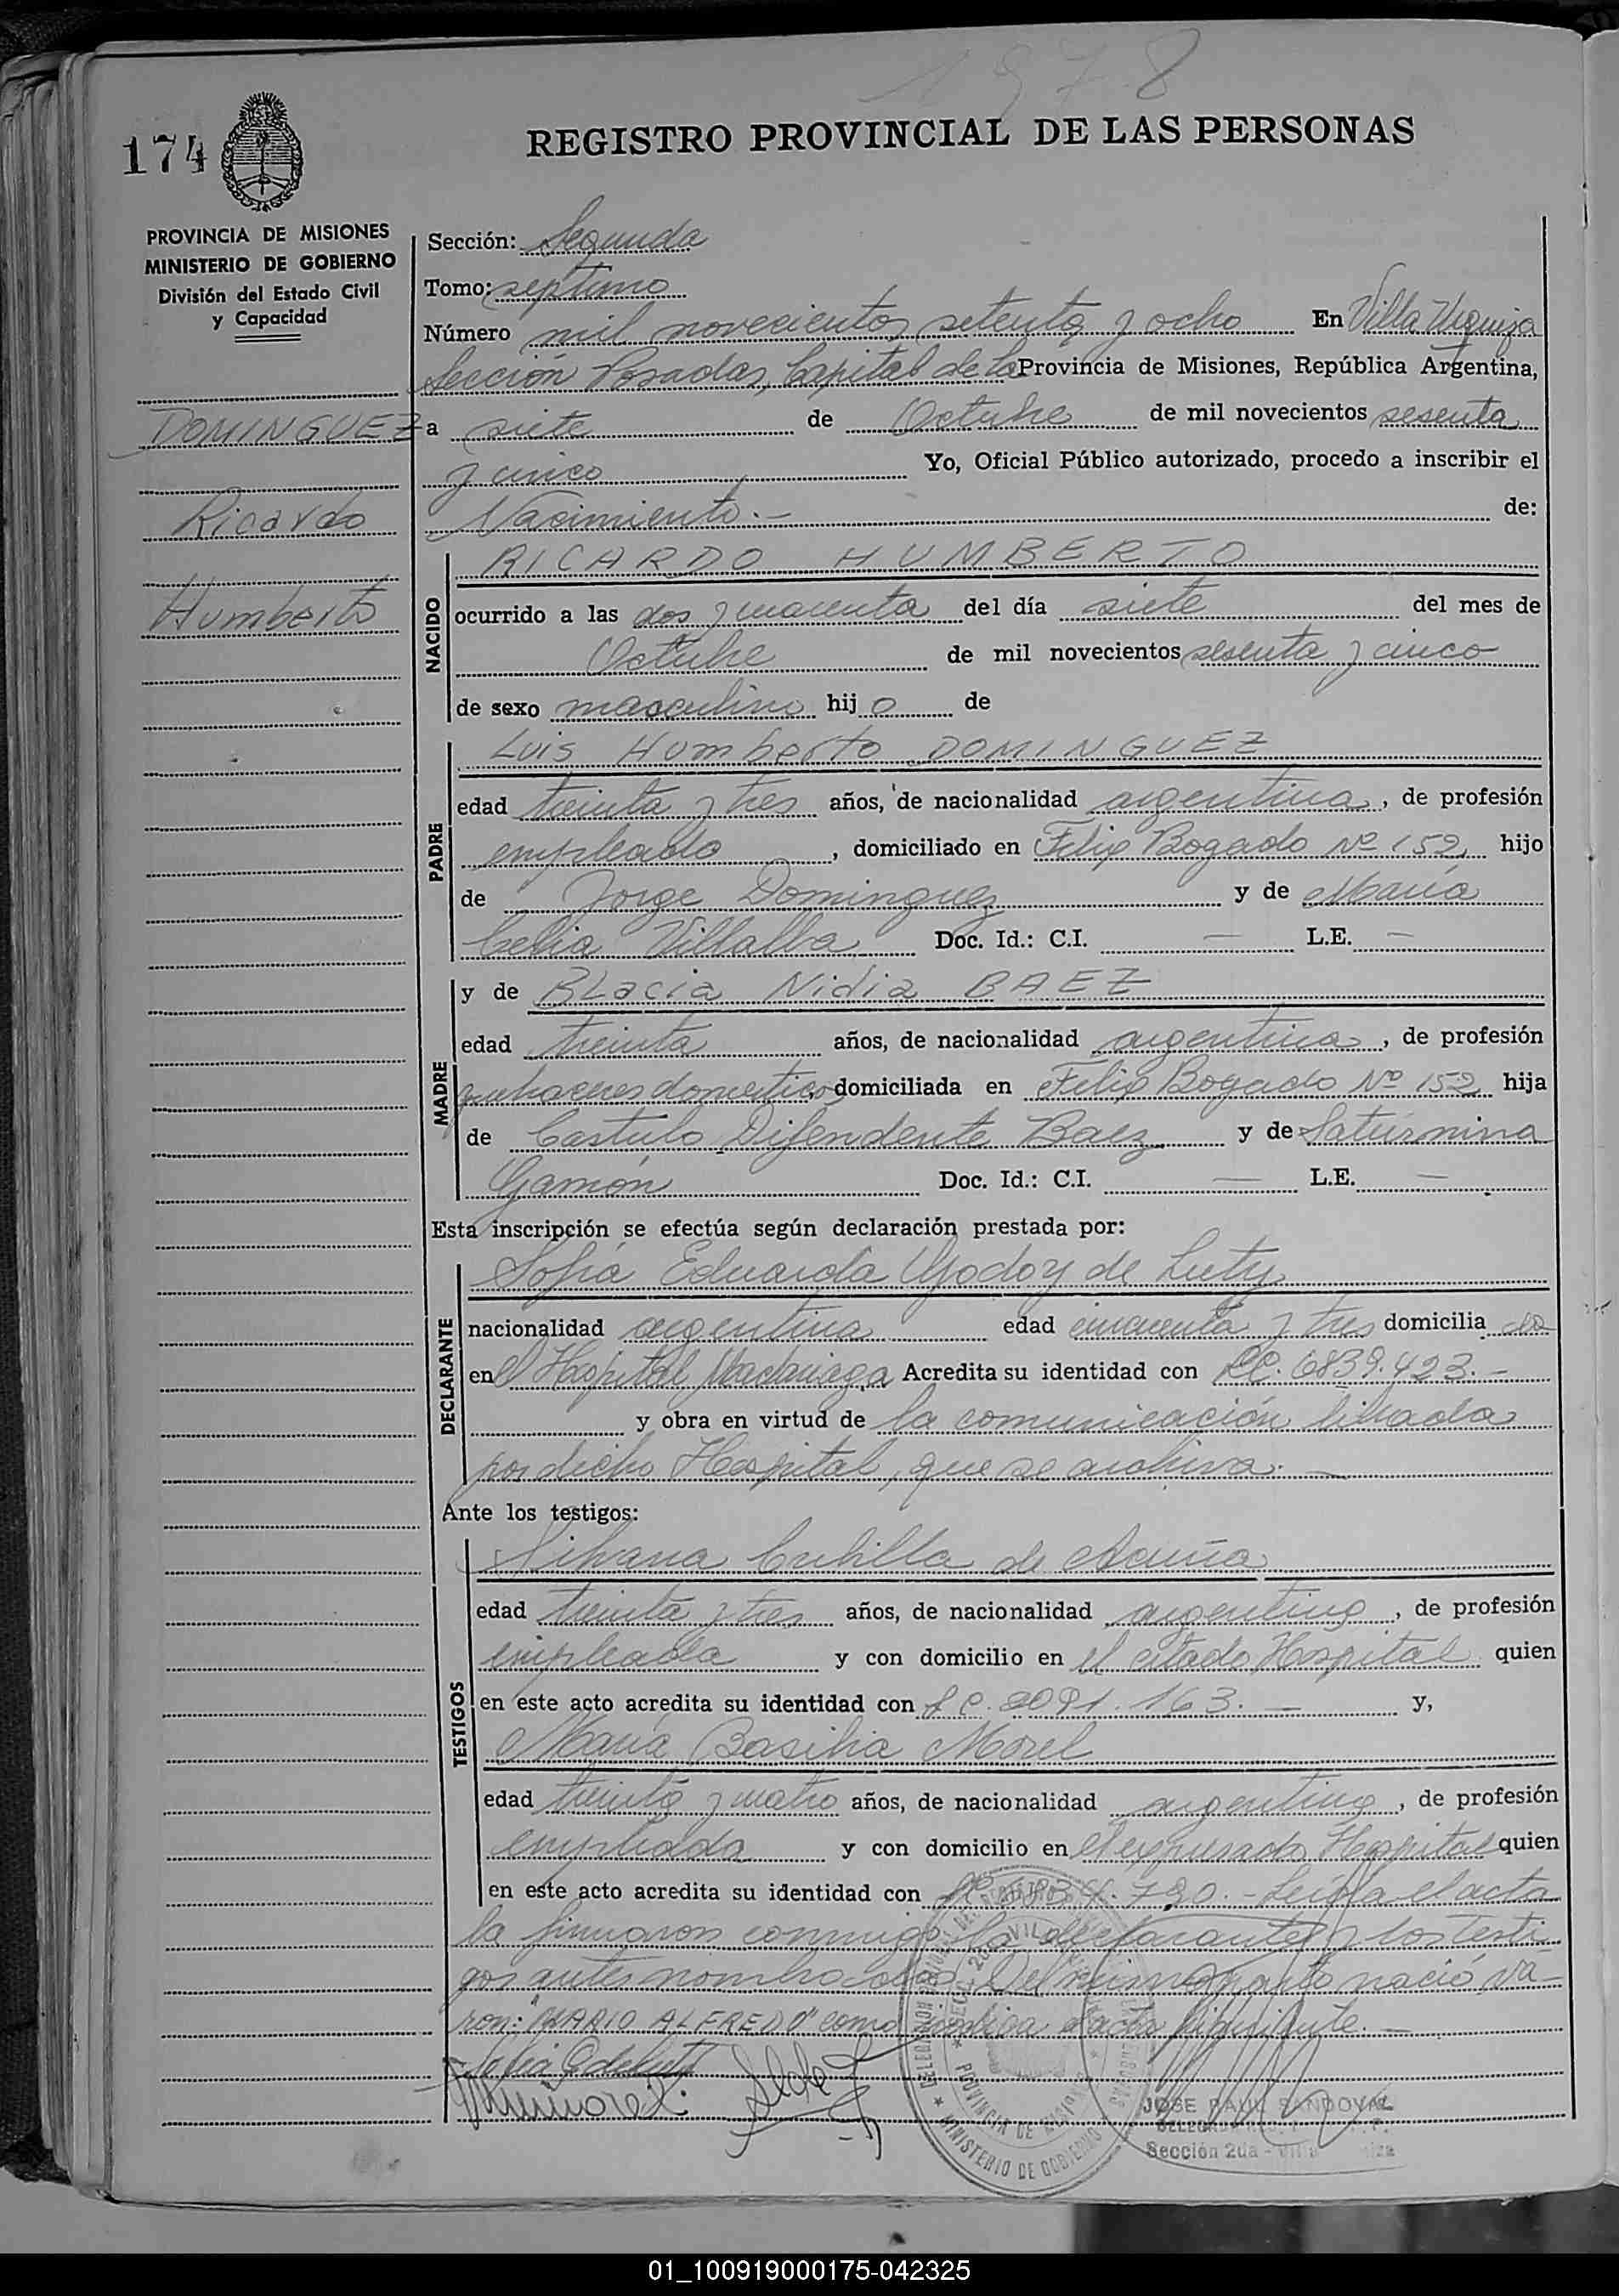 1978
174
REGISTRO PROVINCIAL DE LAS PERSONAS
PROVINCIA DE MISIONES
MINISTERIO DE GOBIERNO
División del Estado Civil
y Capacidad
DOMINGUEZ
Ricardo
Humberto
Sección: Segunda
Tomo: septimo
Número mil novecientos setenta y ocho En Villa Urquiza
Sección Posadas, Capital de la Provincia de Misiones, República Argentina,
a siete de Octubre de mil novecientos sesenta
y cinco Yo, Oficial Público autorizado, procedo a inscribir el
Nacimiento.- de:
NACIDO
RICARDO HUMBERTO
ocurrido a las dos y cuarenta del día siete del mes de
Octubre de mil novecientos sesenta y cinco
de sexo masculino hij o de
PADRE
Luis Humberto DOMINGUEZ
edad treinta y tres años, de nacionalidad argentina, de profesión
empleado, domiciliado en Felix Bogado Nº 152, hijo
de Jorge Dominguez y de María
Celia Villalba Doc. Id.: C.I. — L.E. —
MADRE
y de BLacia Nidia BAEZ
edad treinta años, de nacionalidad argentina, de profesión
quehaceres domesticos domiciliada en Felix Bogado Nº 152 hija
de Castulo Difendente Baez y de Saturnina
Gamón Doc. Id.: C.I. — L.E. —
Esta inscripción se efectúa según declaración prestada por:
DECLARANTE
Sofía Eduarda Godoy de Luty
nacionalidad argentina edad cincuenta y tres domicilia da
en el Hospital Madariaga Acredita su identidad con LC. 6839.423.-
y obra en virtud de la comunicación librada
por dicho Hospital, que se archiva. —
Ante los testigos:
TESTIGOS
Silvana Cubilla de Acuña
edad treinta y tres años, de nacionalidad argentina, de profesión
empleada y con domicilio en el citado Hospital quien
en este acto acredita su identidad con L C. 2091.163. — y,
María Basilia Morel
edad treinta y cuatro años, de nacionalidad argentina, de profesión
empleada y con domicilio en el expresado Hospital quien
en este acto acredita su identidad con .790.- Leída el acta
la firmaron conmigo la declarante y los testi
gos antes nombrados. Del mismo parto nació va-
ron: "MARIO ALFREDO" como indica el acta siguiente. —
PROVINCIA DE MISIONES
MINISTERIO DE GOBIERNO
JOSE RAUL SANDOVAL
Sección 2da -
01_100919000175-042325